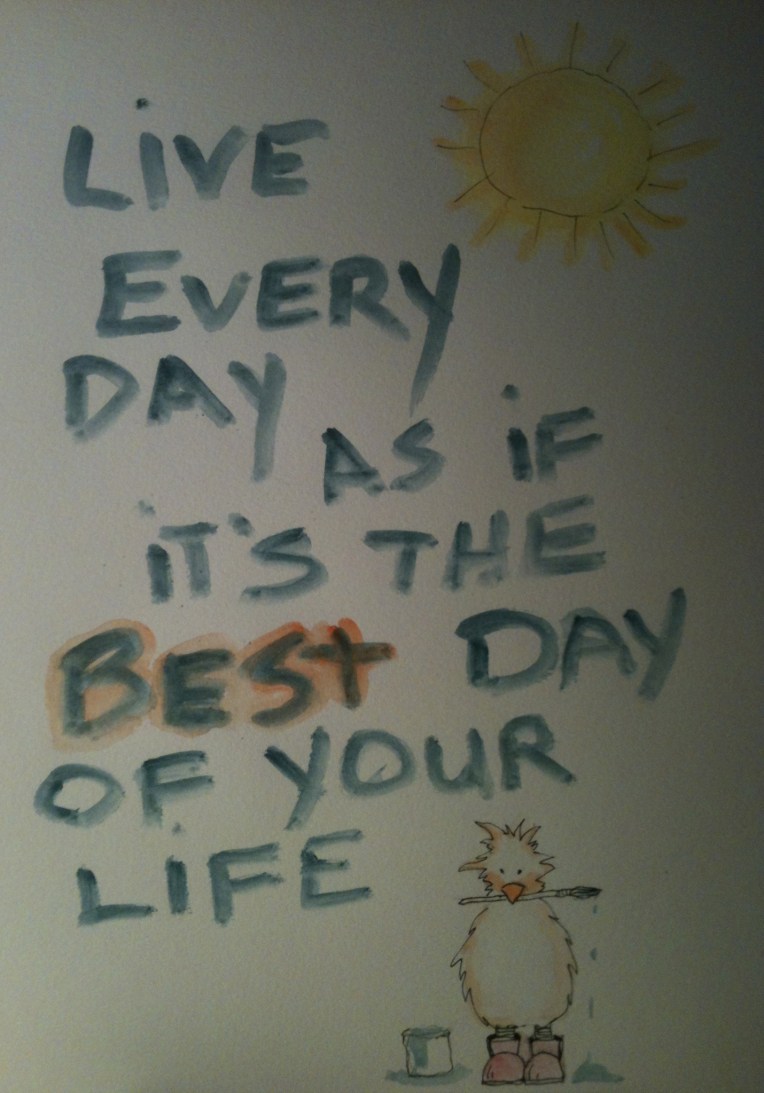 LiVE
EVERY
DAY
AS iF
iT'S THE
BEST DAY
OF YOUR
LiFE